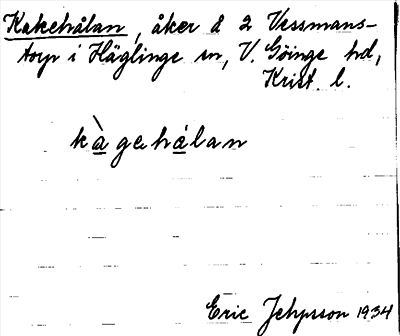 Kakehålan, åker å 2 Vessmans-
torp i Häglinge sn, V. Göinge hd,
Krist. l.
kàgehålan
Eric Jeppsson 1934